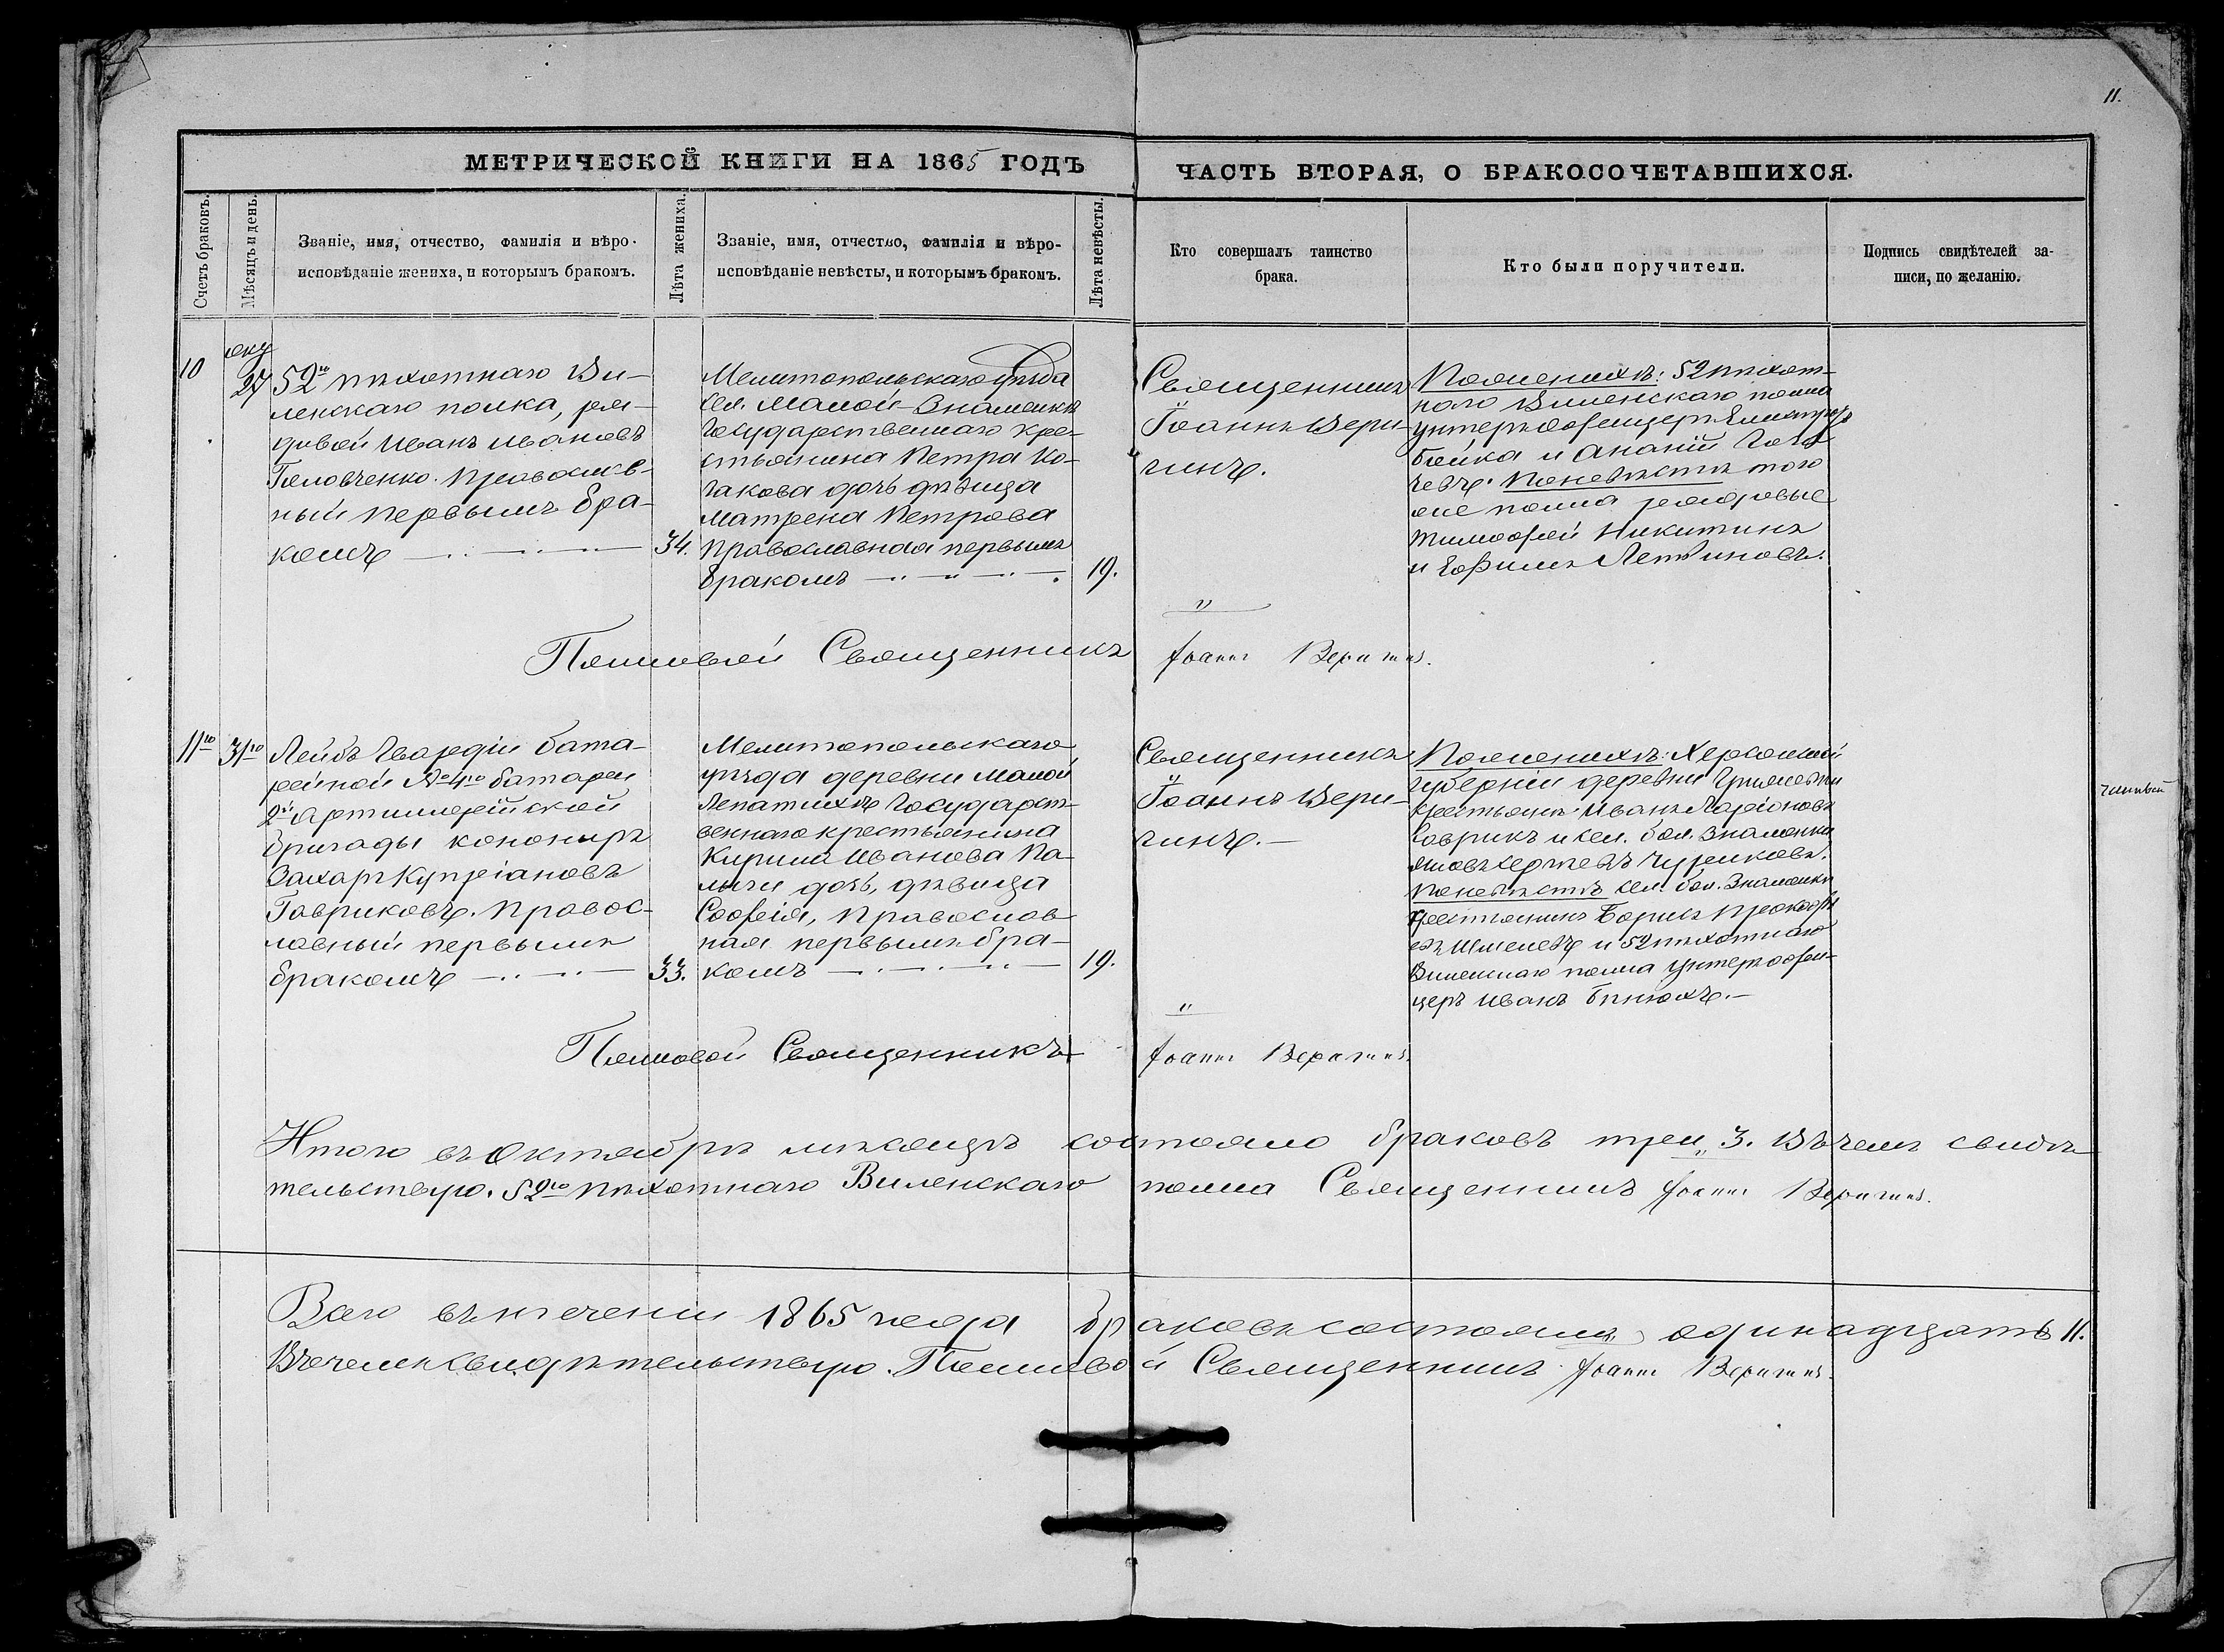 11.
МЕТРИЧЕСКОЙ КНИГИ НА 1865 ГОДЪ
ЧАСТЬ ВТОРАЯ, О БРАКОСОЧЕТАВШИХСЯ.
Счетъ браковъ.
Мѣсяцъ и день.
Званіе, имя, отчество, фамилія и вѣро-
исповѣданіе жениха, и которымъ бракомъ.
Лѣта жениха.
Званіе, имя, отчество, фамилія и вѣро-
исповѣданіе невѣсты, и которымъ бракомъ.
Лѣта невѣсты.
Кто совершалъ таинство
брака.
Кто были поручители.
Подпись свидѣтелей за-
писи, по желанію.
10
27
52го пѣхотнаго Ви-
ленскаго полка, ря-
довой Иванъ Ивановъ
Головченко. Православ-
ный первымъ бра-
комъ
34.
Мелитопольскаго уѣзда
сел. Малой-Знаменки
Государственнаго кре-
стьянина Петра Ко-
дочь дѣвица
Матрена Петрова
православная первымъ
бракомъ
19.
Священникъ
Іоаннъ Вери-
гинъ.
По женихѣ: 52 пѣхот-
наго Виленскаго полка
унтеръ-офицеръ
и Ананій
По невѣстѣ того
же полка рядовые
Тимофей Никитинъ
и Ефимъ
Полковой Священникъ Іоаннъ Веригинъ.
11го
31го
Лейбъ Гвардіи бата-
рейной №4го батареи
2й Артиллерійской
бригады кононыръ
Захаръ Купріановъ
Гавриковъ. Правос-
лавный первымъ
бракомъ
33.
Мелитопольскаго
уѣзда деревни Малой
Лепатихѣ Государст-
веннаго крестьянина
Кирила Иванова Па-
дочь, дѣвица
Софія, православ
ная первымъ бра-
комъ
19.
Священникъ
Іоаннъ Вери-
гинъ.
По женихѣ: Херсонской
губерніи деревни
Иванъ Ларіоновъ
Гаврикъ и сел. бол. Знаменки
Чуриковъ.
По невѣстѣ сел. бол. Знаменки
крестьянинъ Борисъ Прокофь
евъ и 52 пѣхотнаго
Виленскаго полка унтеръ офи-
церъ Иванъ
Полковой Священникъ Іоаннъ Веригинъ.
Итого въ Октябрѣ мѣсяцѣ состояло браковъ три 3. Въ чемъ свидѣ
тельствую. 52го пѣхотнаго Виленскаго полка Священникъ Іоаннъ Веригинъ.
Всего въ теченіи 1865 года браковъ состояло одинадцать 11.
Въ чемъ свидѣтельствую. Полковой Священникъ Іоаннъ Веригинъ.